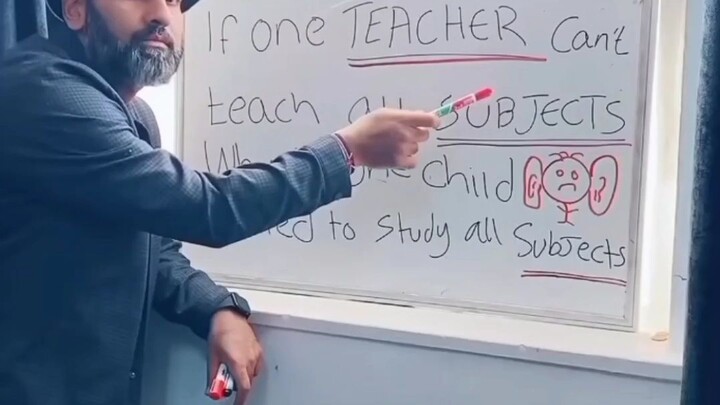 If one TEACHER Can't
teach SUBJECTS
Child
to study all Subjects